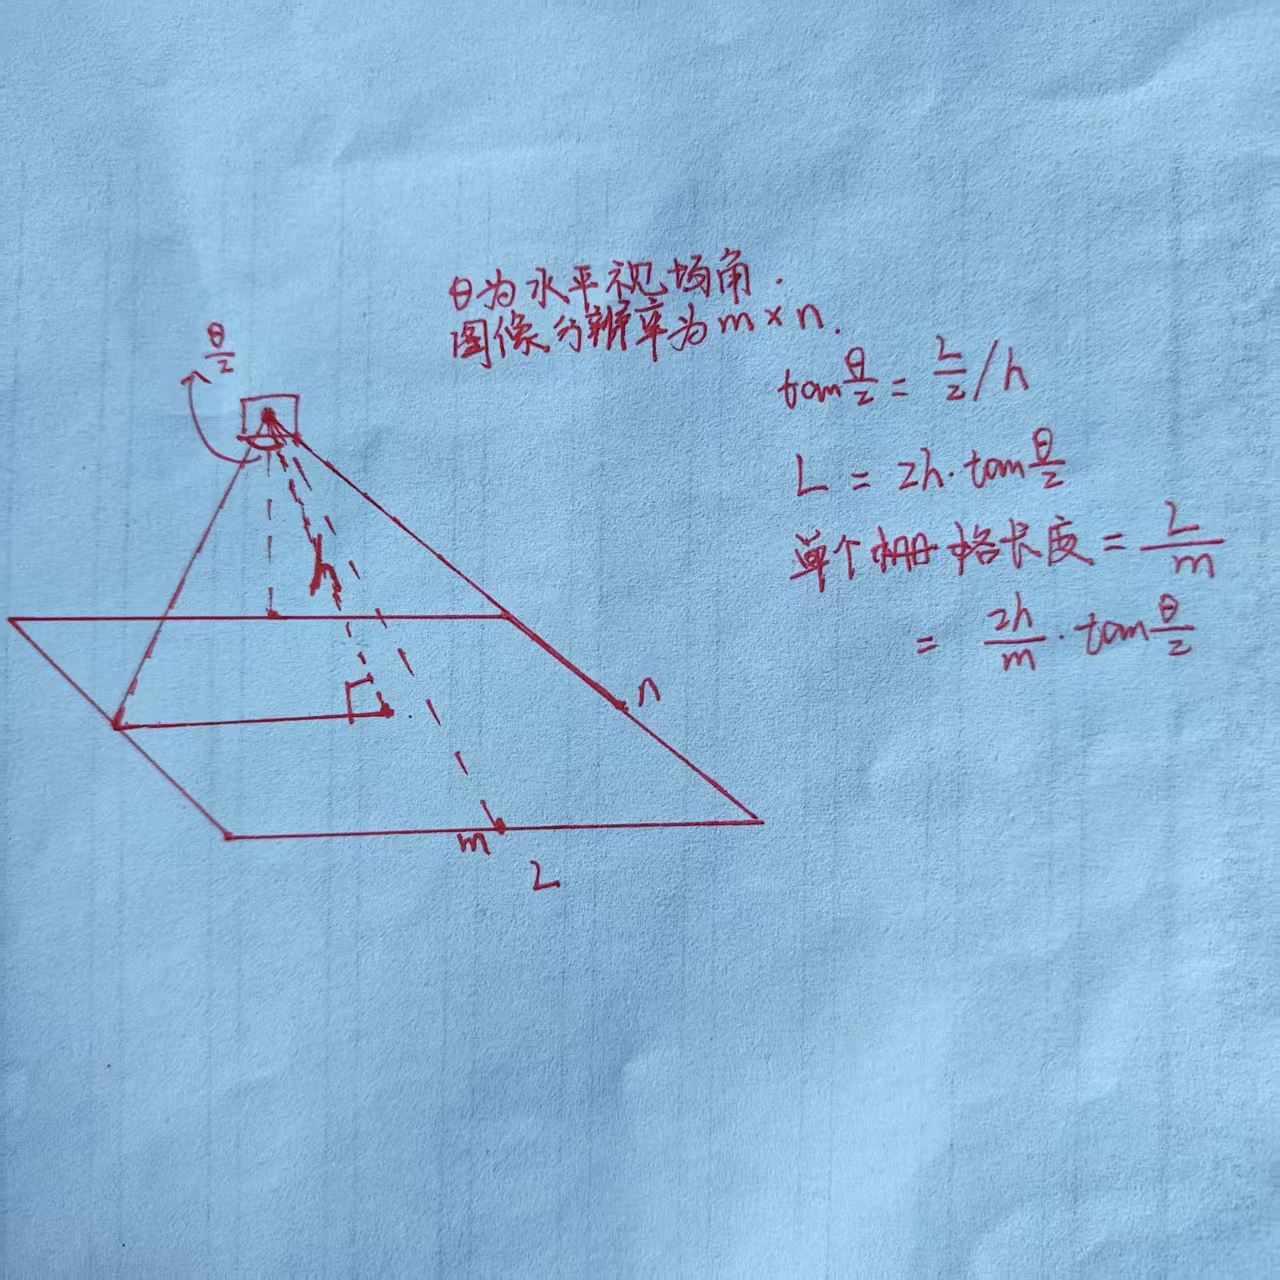 θ为水平视场角.
图像分辨率为m×n.
θ/2
tan θ/2 = L/2 / h
L = 2h·tan θ/2
单个栅格长度 = L/m
= 2h/m · tan θ/2
h
n
m
L